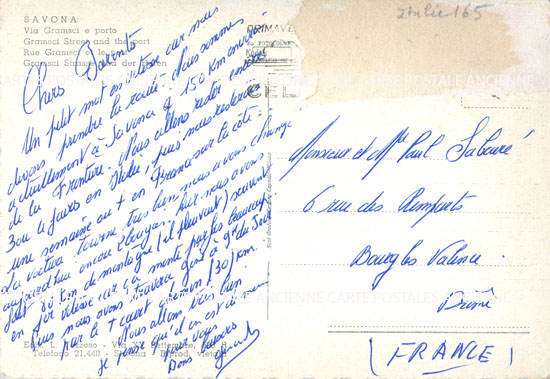 SAVONA
Via Gramsci e porto
Gramsci Street and the port
Rue Gramsci et le port
Gramsci Strasse und der Hafen
Italie 165
PRIMAVE
Chers Parents
Un petit mot en vitesse car nous
devons prendre la route. Nous sommes
actuellement à Savona à 150 km environ
de la Frontière. Nous allons rester encore
3 ou 4 jours en Italie, puis nous resterons
une semaine ou + en France sur la côte.
La voiture tourne très bien, nous avons changé
aujourd'hui encore 2 bougies. Hier nous avons
fait 80 km de montagne (il pleuvait) souvent
en 1ère vitesse car ça monte par les
nous avons
par le + court chemin (30) km.
Nous allons très bien
je pense qu'il en est de même
pour vous
Bons baisers
Monsieur et Mme Paul Sabouré
6 rue des Remparts
Bourg les Valence
Drôme
(FRANCE)
Telefono 21.440 - Savona - Riprod. vietata
CARTE POSTALE ANCIENNE